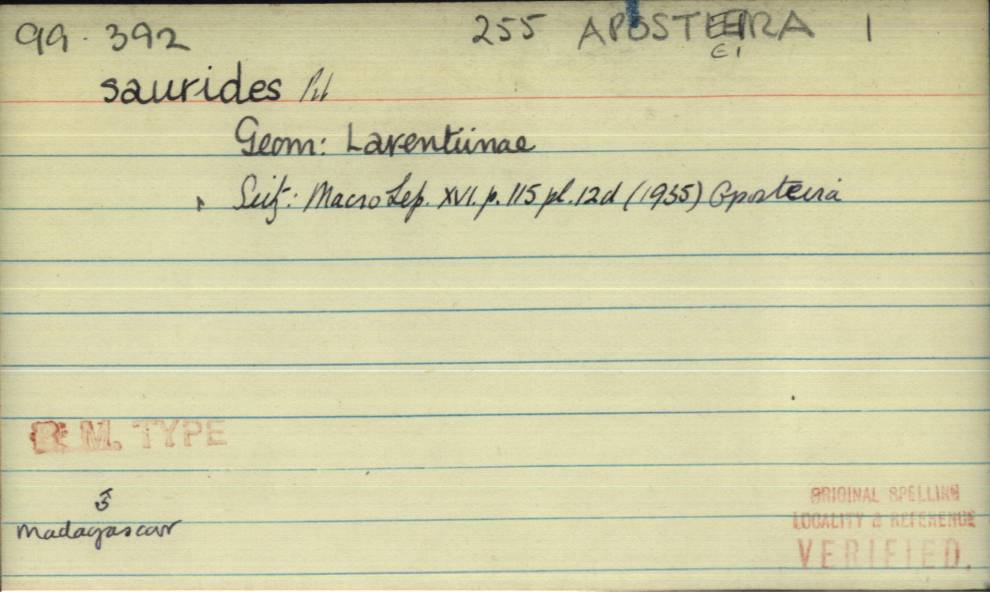 99.392 255 APOSTEIRA 1
EI
saurides Prt
Geom: Larentiinae
Seitz: Macro Lep. XVI. p. 115 pl. 12d (1935) Aposteira
B. M. TYPE
♂
Madagascar
ORIGINAL SPELLING
LOCALITY & REFERENCE
VERIFIED.